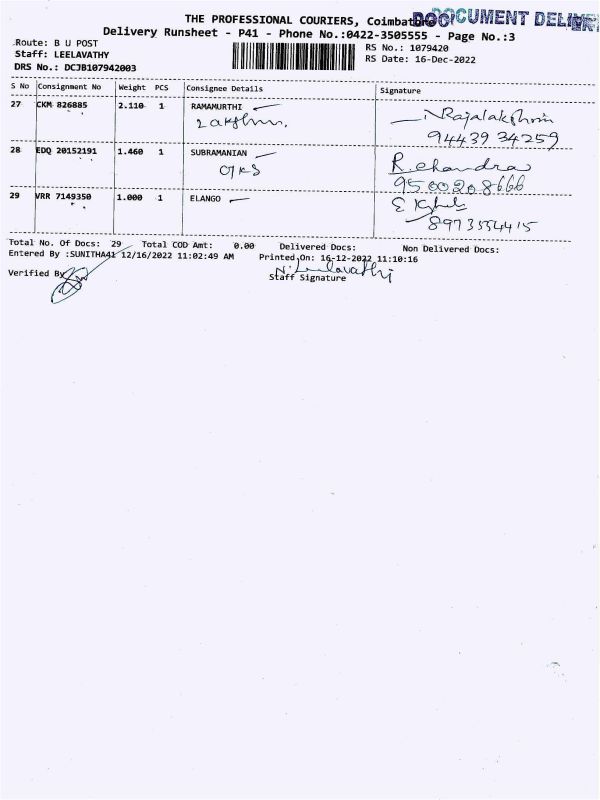 THE PROFESSIONAL COURIERS, Coimbatore
DOCUMENT DELIVER
Delivery Runsheet - P41 - Phone No.:0422-3505555 - Page No.:3
Route: B U POST
Staff: LEELAVATHY
DRS No.: DCJB107942003
RS No.: 1079420
RS Date: 16-Dec-2022
S No Consignment No Weight PCS Consignee Details Signature
27 CKM 826885 2.110 1 RAMAMURTHI
N Rajalakshmi
94439 34259
28 EDQ 20152191 1.460 1 SUBRAMANIAN
R. chandra
9500208666
29 VRR 7149350 1.000 1 ELANGO
8973554415
Total No. Of Docs: 29 Total COD Amt: 0.00 Delivered Docs: Non Delivered Docs:
Entered By :SUNITHA41 12/16/2022 11:02:49 AM Printed On: 16-12-2022 11:10:16
N. Leelavathi
Verified By Staff Signature